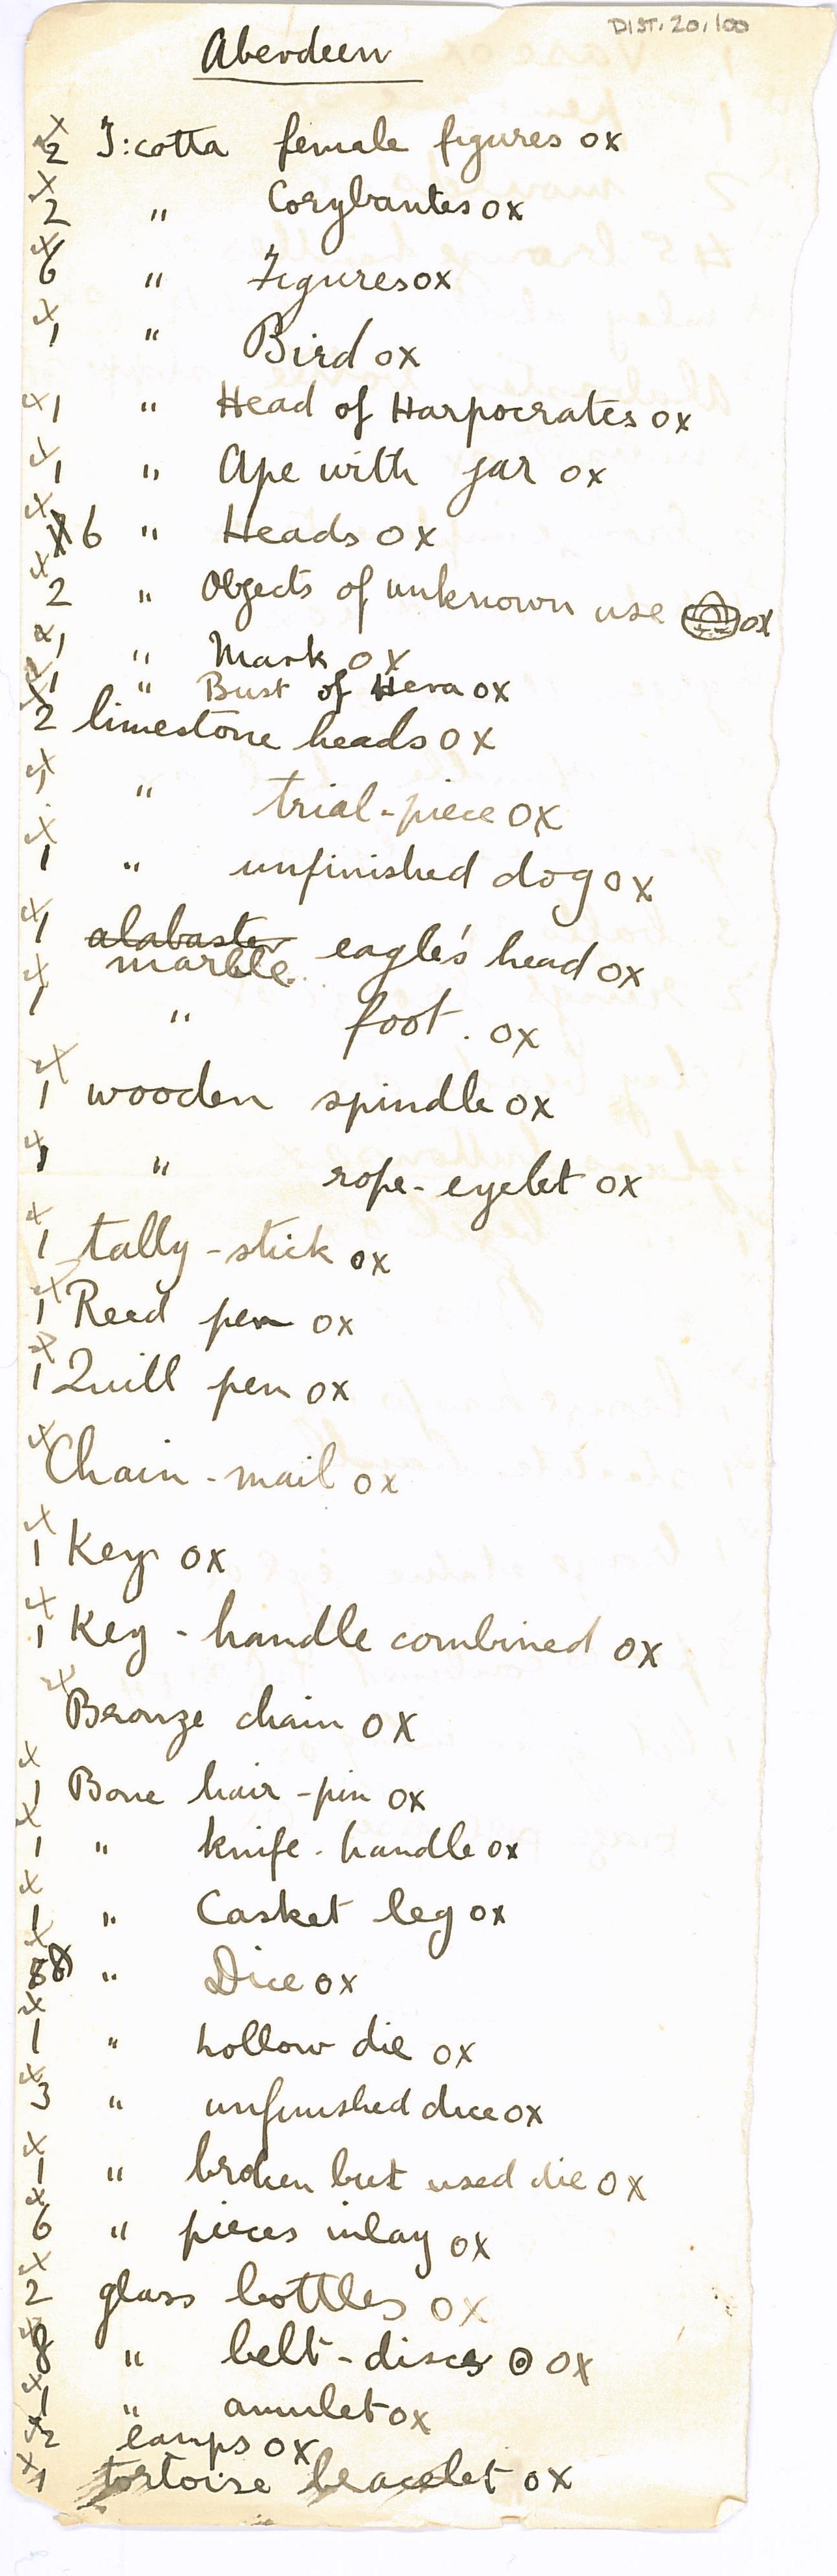 DIST. 20.100
Aberdeen
2 T:cotta female figures ox
2 " Corybantes ox
6 " Figures ox
1 " Bird ox
1 " Head of Harpocrates ox
1 " Ape with jar ox
6 " Heads ox
2 " Objects of unknown use ox
1 " Mask ox
1 " Bust of Hera ox
2 limestone heads ox
1 " trial-piece ox
1 " unfinished dog ox
1 alabaster eagle's head ox
marble
1 " foot. ox
1 wooden spindle ox
1 " rope-eyelet ox
1 tally-stick ox
1 Reed pen ox
1 Quill pen ox
Chain-mail ox
1 Key ox
1 Key-handle combined ox
Bronze chain ox
1 Bone hair-pin ox
1 " knife-handle ox
1 " Casket leg ox
" Dice ox
1 " hollow die ox
3 " unfinished dice ox
1 " broken but used die ox
6 " pieces inlay ox
2 glass bottles ox
" belt-discs ox
1 " amulet ox
2 lamps ox
1 tortoise bracelet ox